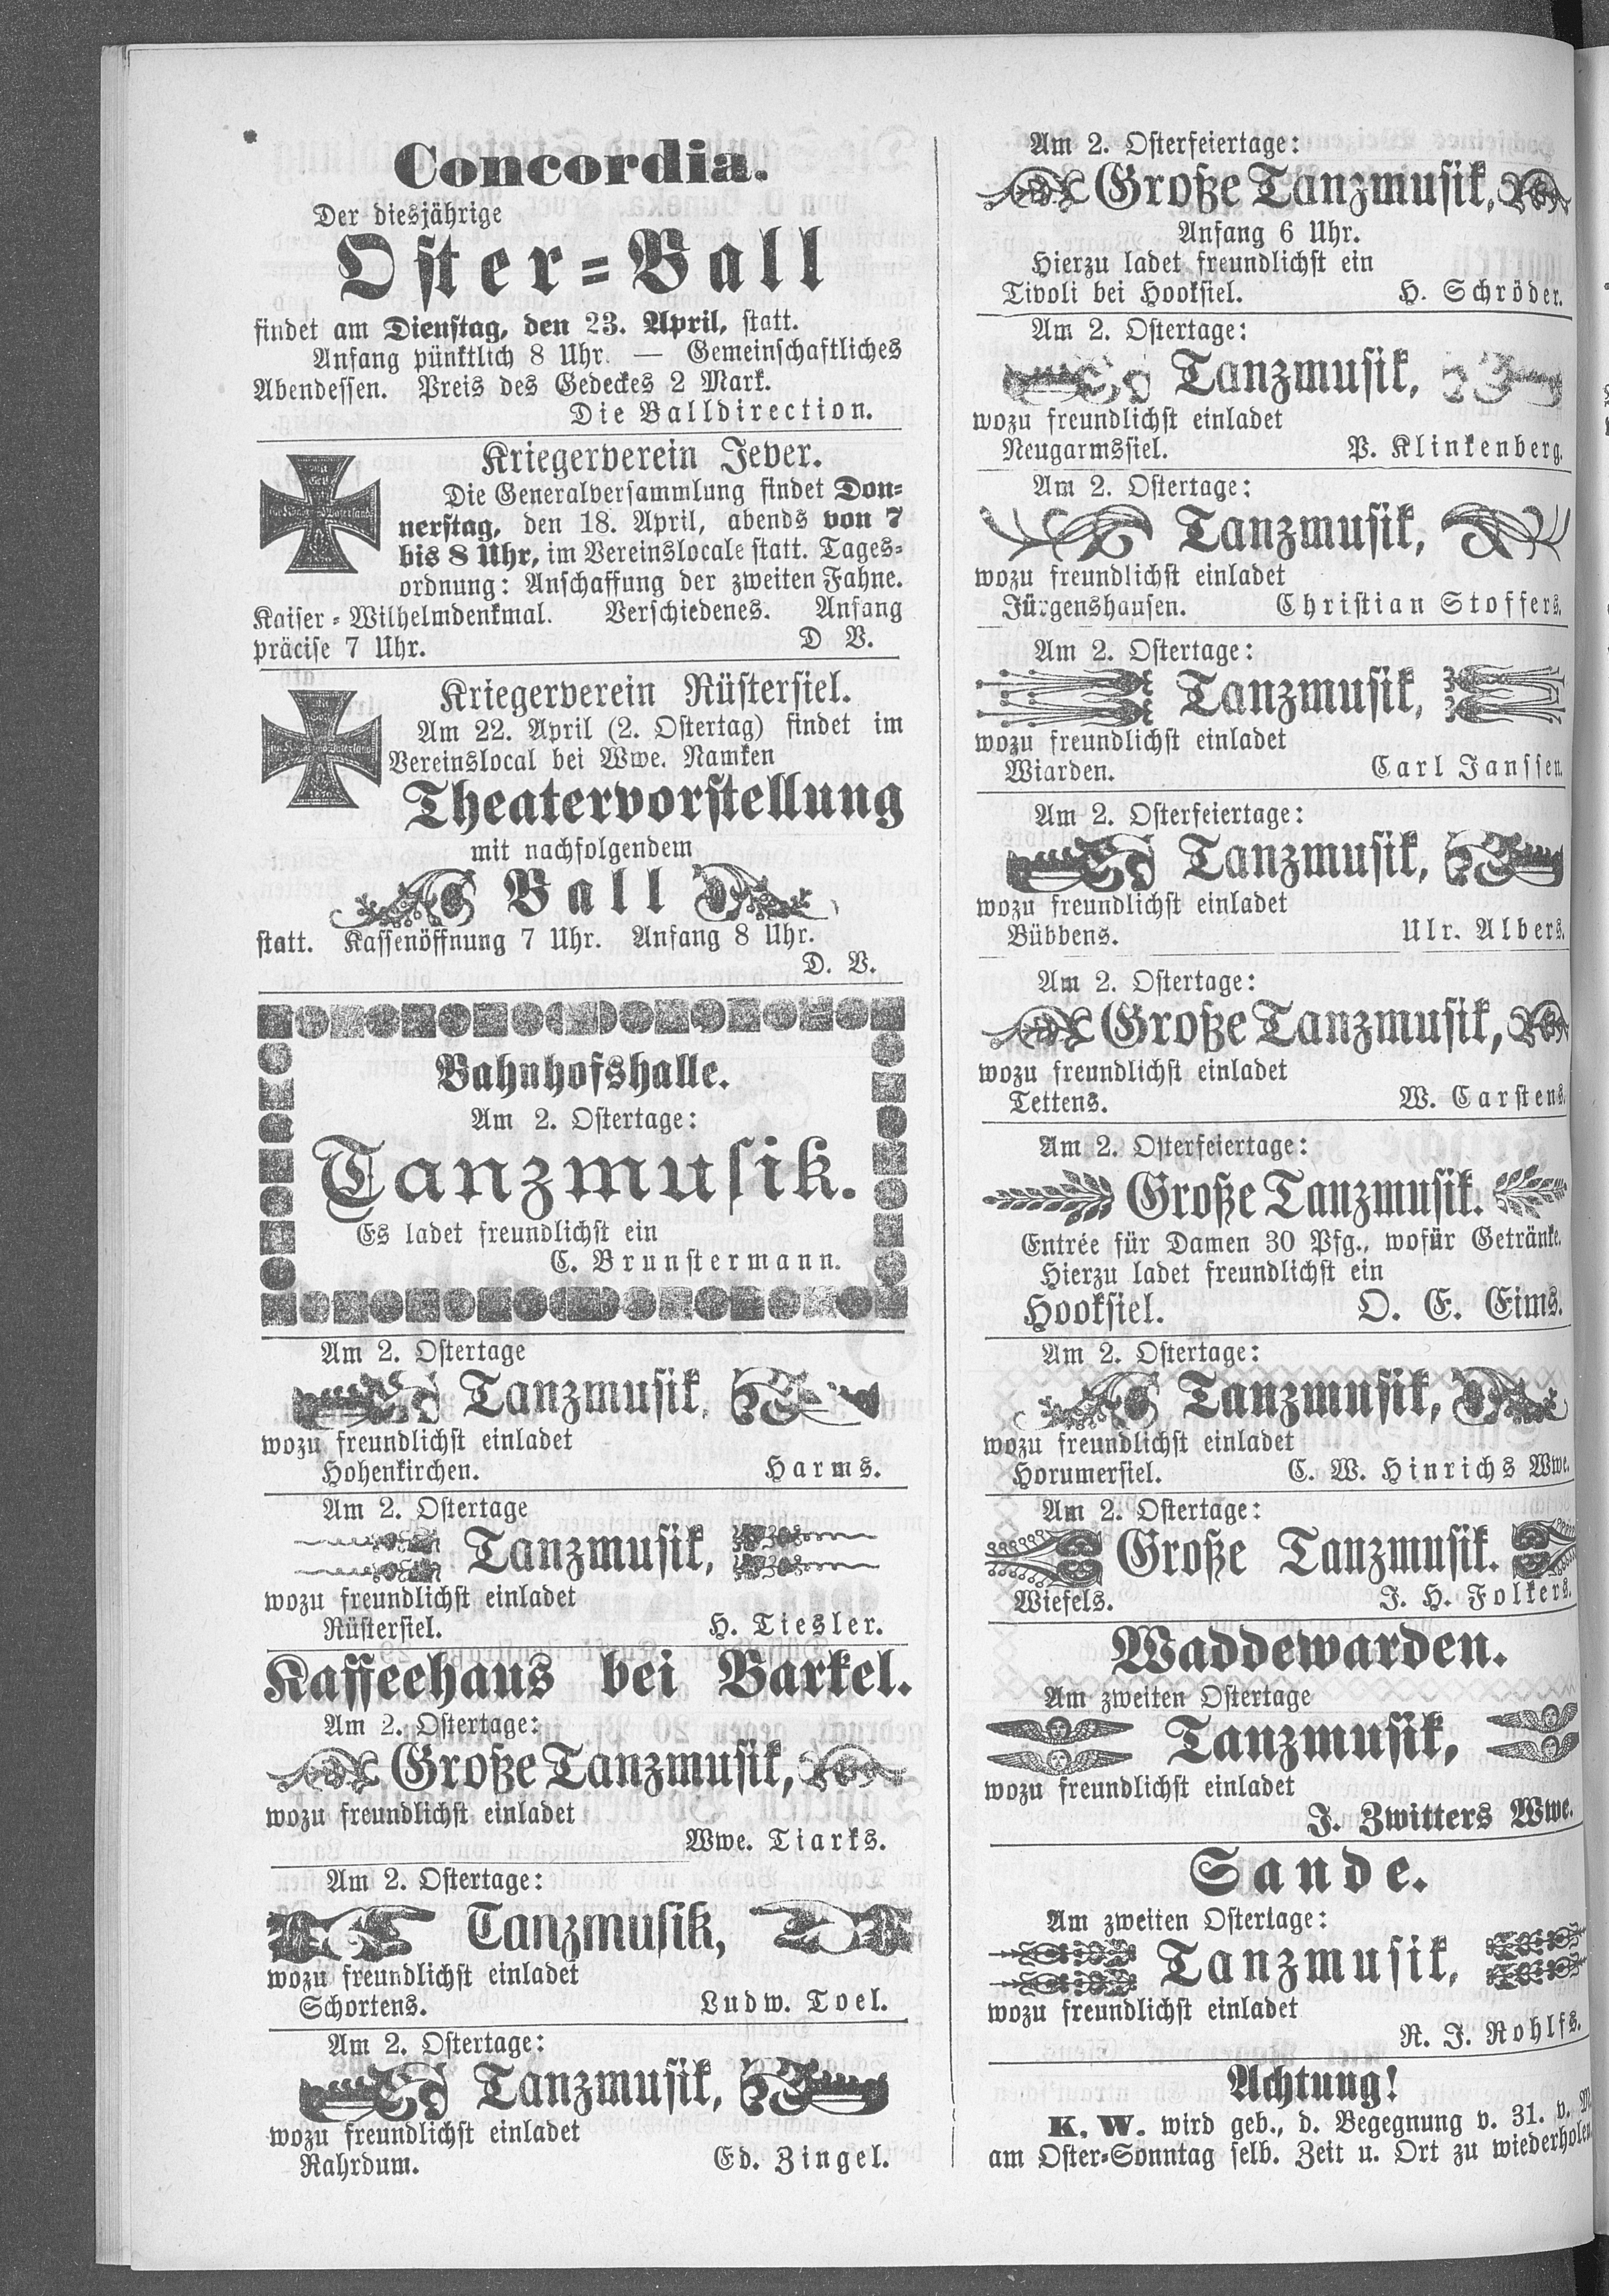 Concordia.
Der diesjährige
Oster=Ball
findet am Dienstag, den 23. April, statt.
Anfang pünktlich 8 Uhr. — Gemeinschaftliches
Abendessen. Preis des Gedeckes 2 Mark.
Die Balldirection.
Kriegerverein Jever.
Die Generalversammlung findet Don=
nerstag, den 18. April, abends von 7
bis 8 Uhr, im Vereinslocale statt. Tages=
ordnung: Anschaffung der zweiten Fahne.
Kaiser=Wilhelmdenkmal. Verschiedenes. Anfang
präcise 7 Uhr. D V.
Kriegerverein Rüstersiel.
Am 22. April (2. Ostertag) findet im
Vereinslocal bei Wwe. Namken
Theatervorstellung
mit nachfolgendem
Ball
statt. Kassenöffnung 7 Uhr. Anfang 8 Uhr.
D. V.
Bahnhofshalle.
Am 2. Ostertage:
Tanzmusik.
Es ladet freundlichst ein
C. Brunstermann.
Am 2. Ostertage
Tanzmusik,
wozu freundlichst einladet
Hohenkirchen. Harms.
Am 2. Ostertage
Tanzmusik,
wozu freundlichst einladet
Rüstersiel. H. Tiesler.
Kaffeehaus bei Barkel.
Am 2. Ostertage:
Große Tanzmusik,
wozu freundlichst einladet
Wwe. Tiarks.
Am 2. Ostertage:
Tanzmusik,
wozu freundlichst einladet
Schortens. Ludw. Toel.
Am 2. Ostertage:
Tanzmusik,
wozu freundlichst einladet
Rahrdum. Ed. Zingel.
Am 2. Osterfeiertage:
Große Tanzmusik,
Anfang 6 Uhr.
Hierzu ladet freundlichst ein
Tivoli bei Hooksiel. H. Schröder.
Am 2. Ostertage:
Tanzmusik,
wozu freundlichst einladet
Neugarmssiel. P. Klinkenberg.
Am 2. Ostertage:
Tanzmusik,
wozu freundlichst einladet
Jürgenshausen. Christian Stoffers.
Am 2. Ostertage:
Tanzmusik,
wozu freundlichst einladet
Wiarden. Carl Janssen.
Am 2. Osterfeiertage:
Tanzmusik,
wozu freundlichst einladet
Bübbens. Ulr. Albers.
Am 2. Ostertage:
Große Tanzmusik,
wozu freundlichst einladet
Tettens. W. Carstens.
Am 2. Osterfeiertage:
Große Tanzmusik.
Entrée für Damen 30 Pfg., wofür Getränke.
Hierzu ladet freundlichst ein
Hooksiel. O. E. Eims.
Am 2. Ostertage:
Tanzmusik,
wozu freundlichst einladet
Horumersiel. C. W. Hinrichs Wwe.
Am 2. Ostertage:
Große Tanzmusik.
Wiefels. J. H. Folkers.
Waddewarden.
Am zweiten Ostertage
Tanzmusik,
wozu freundlichst einladet
J. Zwitters Wwe.
Sande.
Am zweiten Ostertage:
Tanzmusik,
wozu freundlichst einladet
R. J. Rohlfs.
Achtung!
K. W. wird geb., d. Begegnung v. 31. v.
am Oster=Sonntag selb. Zeit u. Ort zu wiederholen